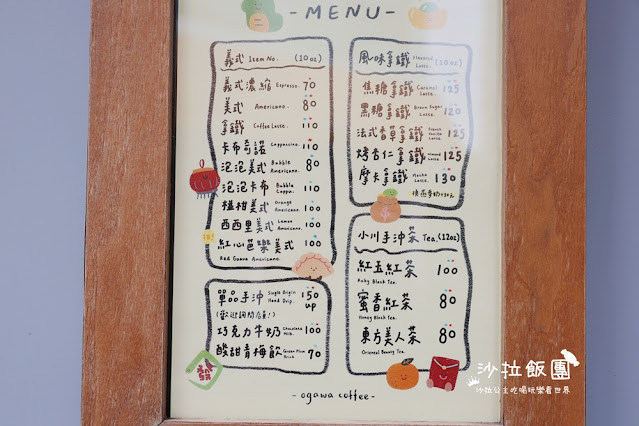 -MENU-
義式 Item No. (10oz)
義式濃縮 Espresso. 70
美式 Americano. 80
拿鐵 Coffee Latte. 110
卡布奇諾 Cappuccino. 110
泡泡美式 Bubble Americano. 80
泡泡卡布 Bubble Cappu. 110
橙柑美式 Orange Americano. 100
西西里美式 Lemon Americano. 100
紅心芭樂美式 100
Red Guava Americano.
單品手沖 Single Origin Hand Drip. 150 up
(歡迎詢問店員!)
巧克力牛奶 Chocolate Milk. 100
酸甜青梅飲 Green Plum Drink 70
風味拿鐵 Flavored Latte. (10oz)
焦糖拿鐵 Caramel Latte. 125
黑糖拿鐵 Brown Sugar Latte. 125
法式香草拿鐵 French Vanilla Latte. 125
烤杏仁拿鐵 Latte. 125
摩卡拿鐵 Mocha Latte. 130
換燕麥奶+30元
小川手沖茶 Tea. (12oz)
紅玉紅茶 100
Ruby Black Tea.
蜜香紅茶 80
Honey Black Tea.
東方美人茶 80
Oriental Beauty Tea.
-ogawa coffee-
沙拉飯團
沙拉公主吃喝玩樂看世界